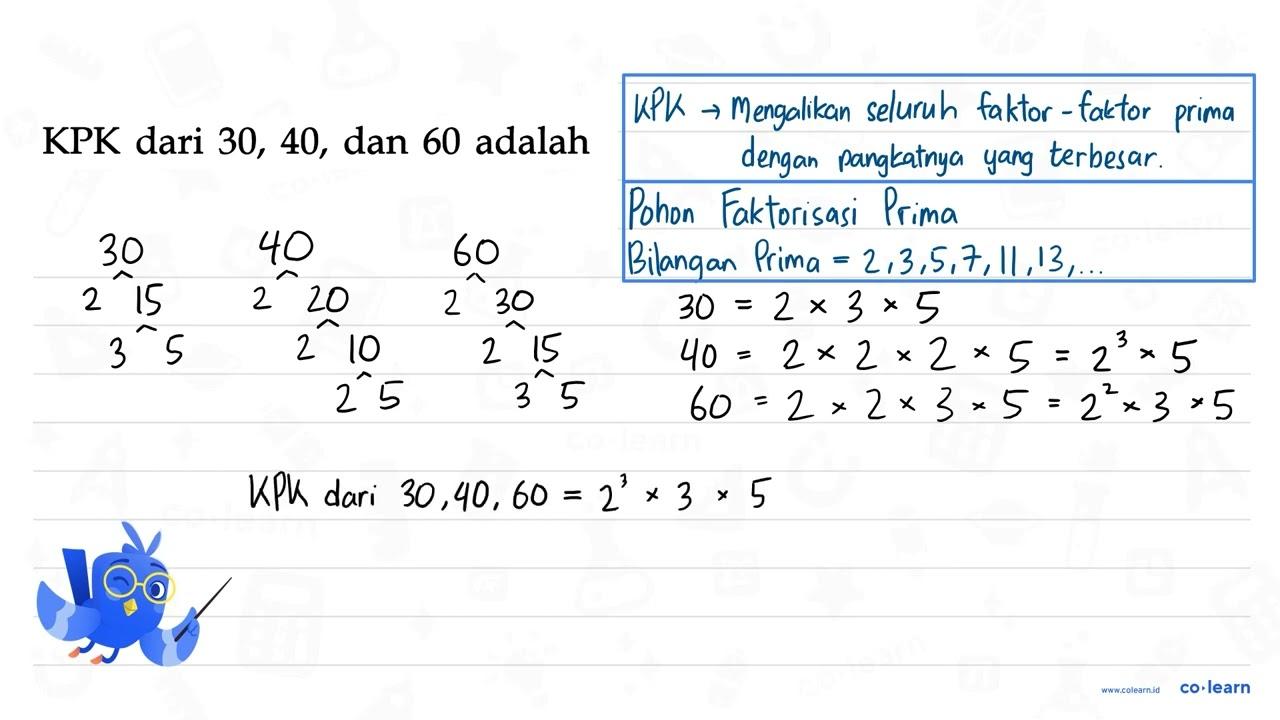 KPK dari 30, 40, dan 60 adalah
KPK → Mengalikan seluruh faktor-faktor prima
dengan pangkatnya yang terbesar.
Pohon Faktorisasi Prima
Bilangan Prima = 2, 3, 5, 7, 11, 13, ...
30 40 60
2 15 2 20 2 30
3 5 2 10 2 15
2 5 3 5
30 = 2 × 3 × 5
40 = 2 × 2 × 2 × 5 = 2³ × 5
60 = 2 × 2 × 3 × 5 = 2² × 3 × 5
KPK dari 30, 40, 60 = 2³ × 3 × 5
www.colearn.id co·learn